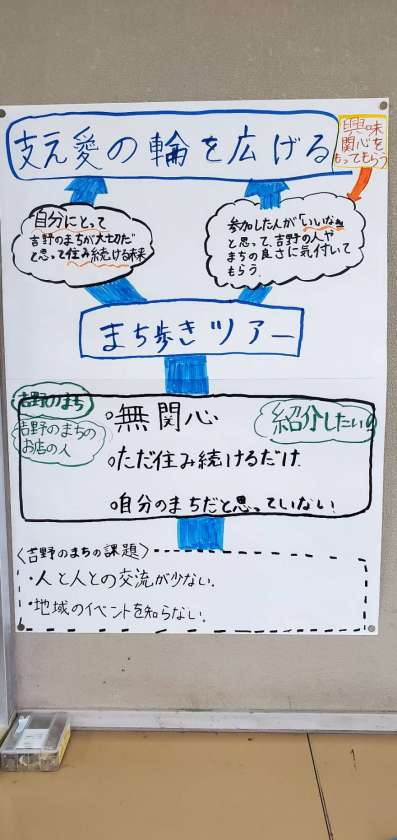 支え愛の輪を広げる
興味
関心を
もってもらう
自分にとって
吉野のまちが大切だ
と思って住み続ける未来
参加した人が「いいなぁ
と思って、吉野の人や
まちの良さに気付いて
もらう。
まち歩きツアー
吉野のまち
吉野のまちの
お店の人
。無関心
紹介したい!!
。ただ住み続けるだけ
。自分のまちだと思っていない
〈吉野のまちの課題〉
・人と人との交流が少ない。
・地域のイベントを知らない。